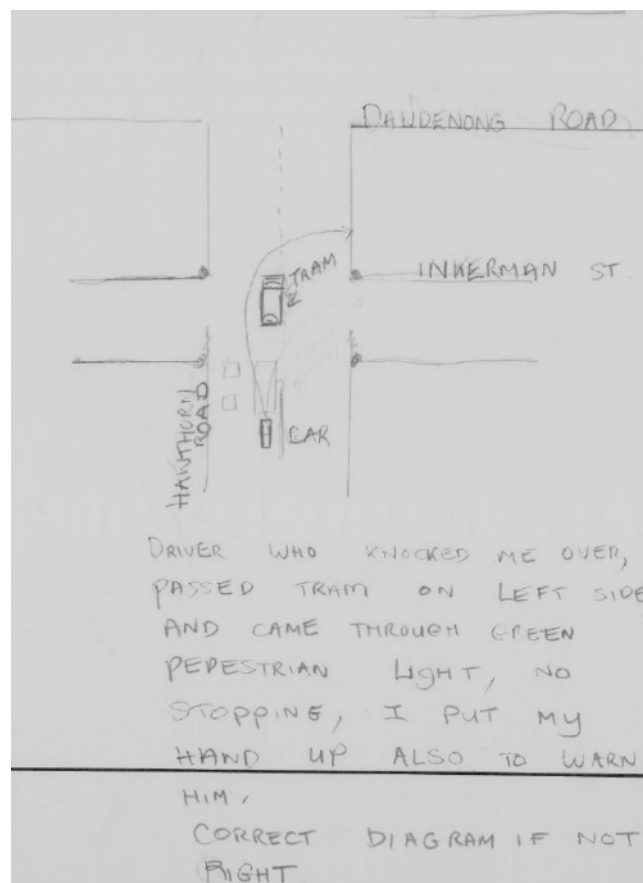 DANDENONG ROAD
TRAM
INKERMAN ST.
HAWTHORN
ROAD
CAR
DRIVER WHO KNOCKED ME OVER,
PASSED TRAM ON LEFT SIDE
AND CAME THROUGH GREEN
PEDESTRIAN LIGHT, NO
STOPPING, I PUT MY
HAND UP ALSO TO WARN
HIM.
CORRECT DIAGRAM IF NOT
RIGHT